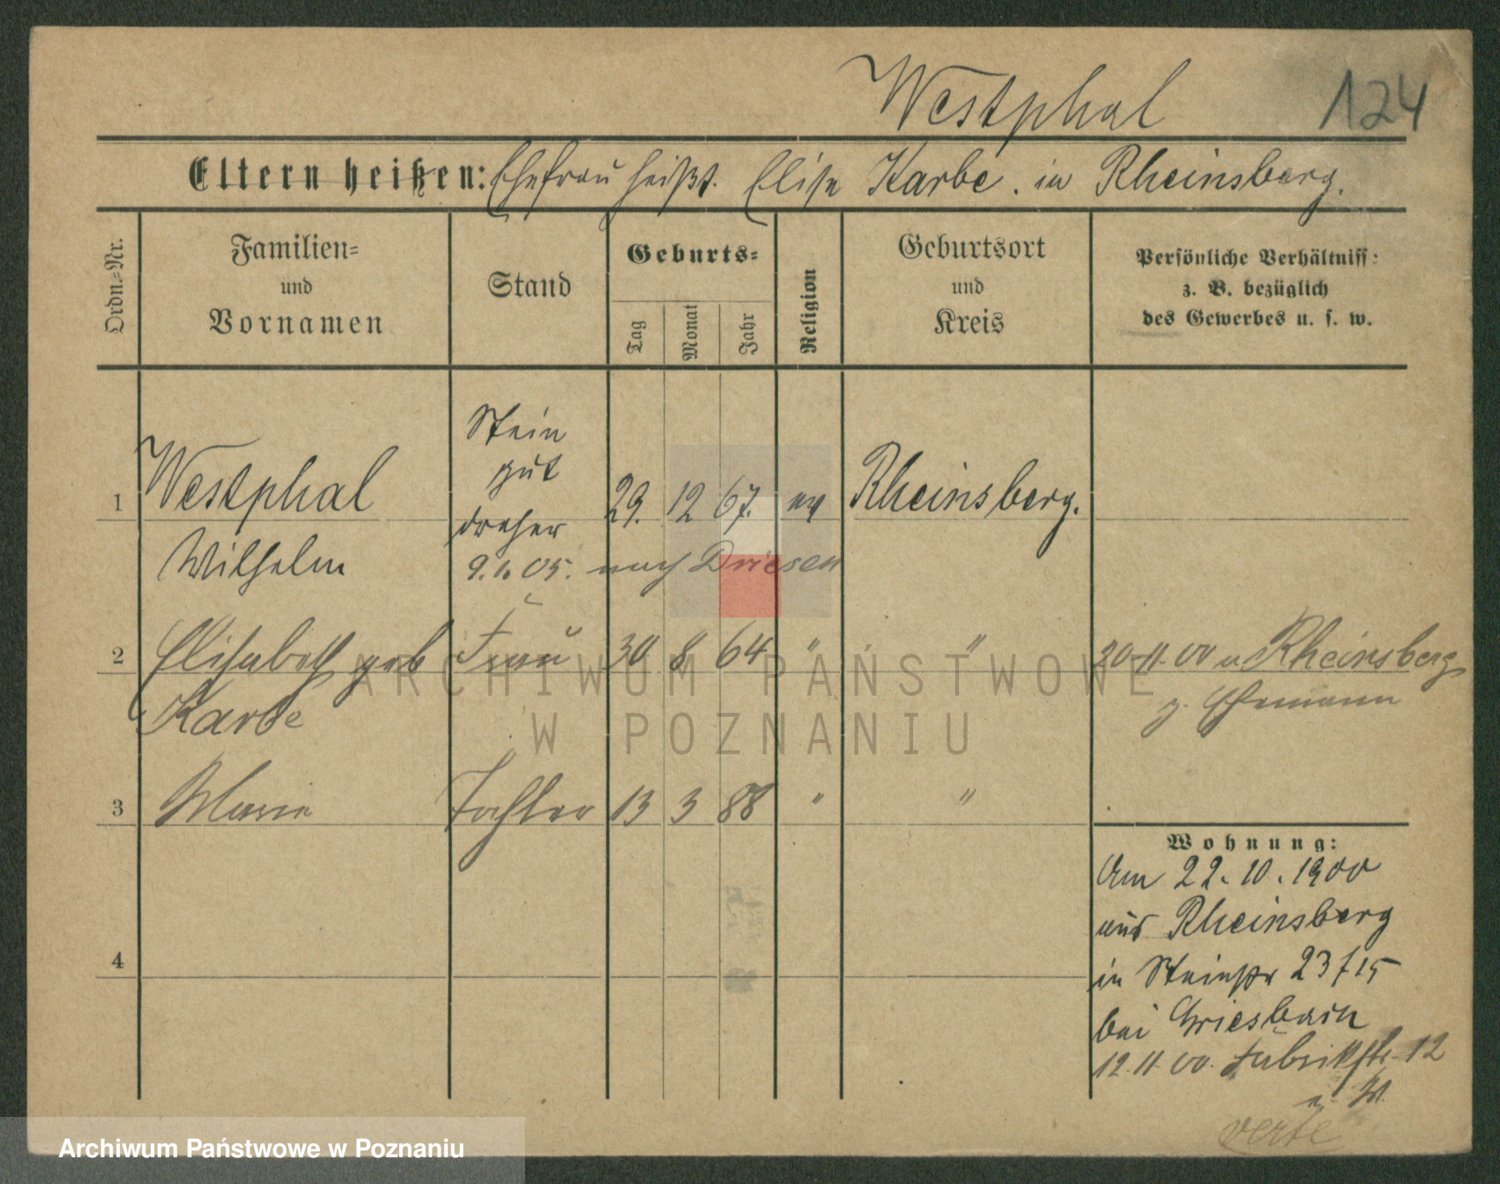 Westphal 124
Eltern heißen: Ehefrau heißt. Elise Karbe. in Rheinsberg.
Ordn.-Nr.
Familien-
und
Vornamen
Stand
Geburts-
Tag
Monat
Jahr
Religion
Geburtsort
und
Kreis
Persönliche Verhältniss:
z. B. bezüglich
des Gewerbes u. s. w.
Stein
gut
1 Westphal dreher 29. 12 67. ev Rheinsberg.
Wilhelm 9.1.05. nach Driesen
2 Elisabeth geb Frau 30 8 64 " " 20.11.00 n Rheinsberg
Karbe z. Ehemann
3 Marie Tochter 13 3 88 " "
Wohnung:
Am 22.10.1900
aus Rheinsberg
4 in Steinstr 23/15
bei Griesbach
12.11.00. Fabrikstr 12
verte
ARCHIWUM PAŃSTWOWE
W POZNANIU
Archiwum Państwowe w Poznaniu